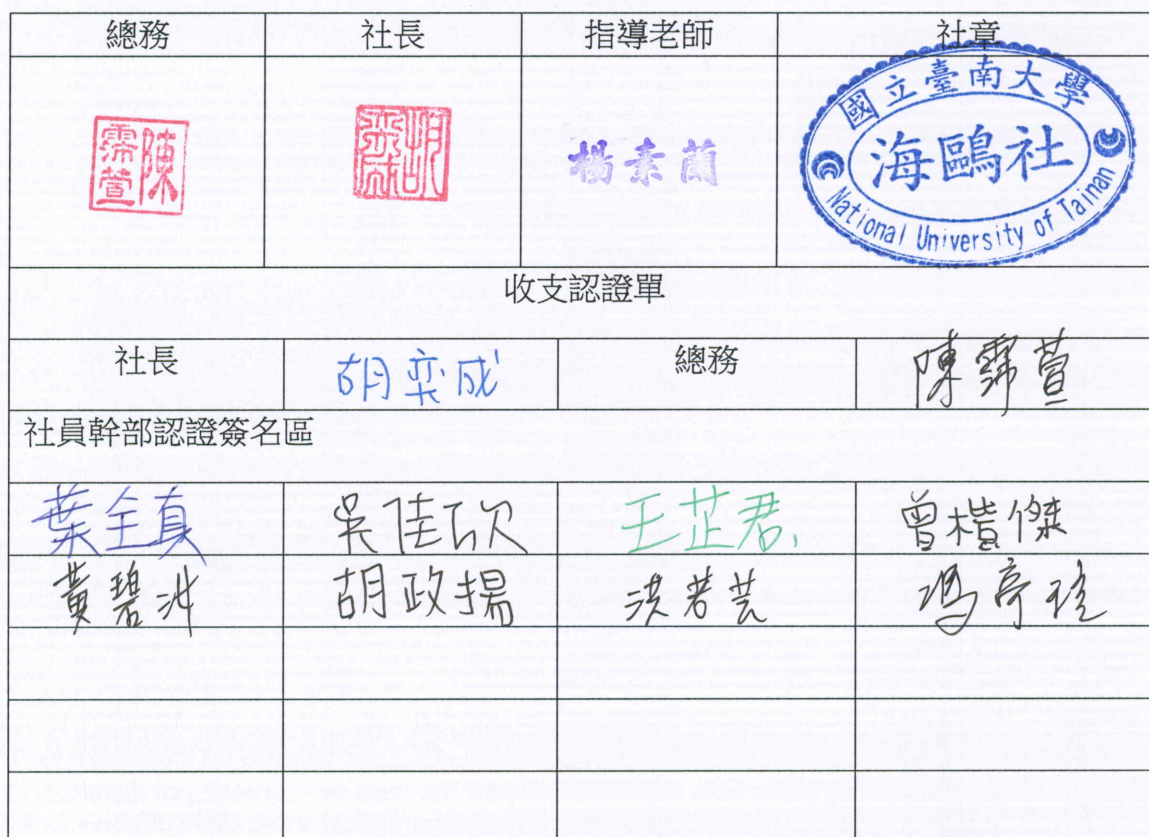 總務 社長 指導老師 社章
陳霈萱 胡奕成 楊素蘭 國立臺南大學 海鷗社 National University of Tainan
收支認證單
社長 胡奕成 總務 陳霈萱
社員幹部認證簽名區
葉全真 吳佳欣 王芷君 曾楷傑
黃碧 胡政揚 洪若芸 馮